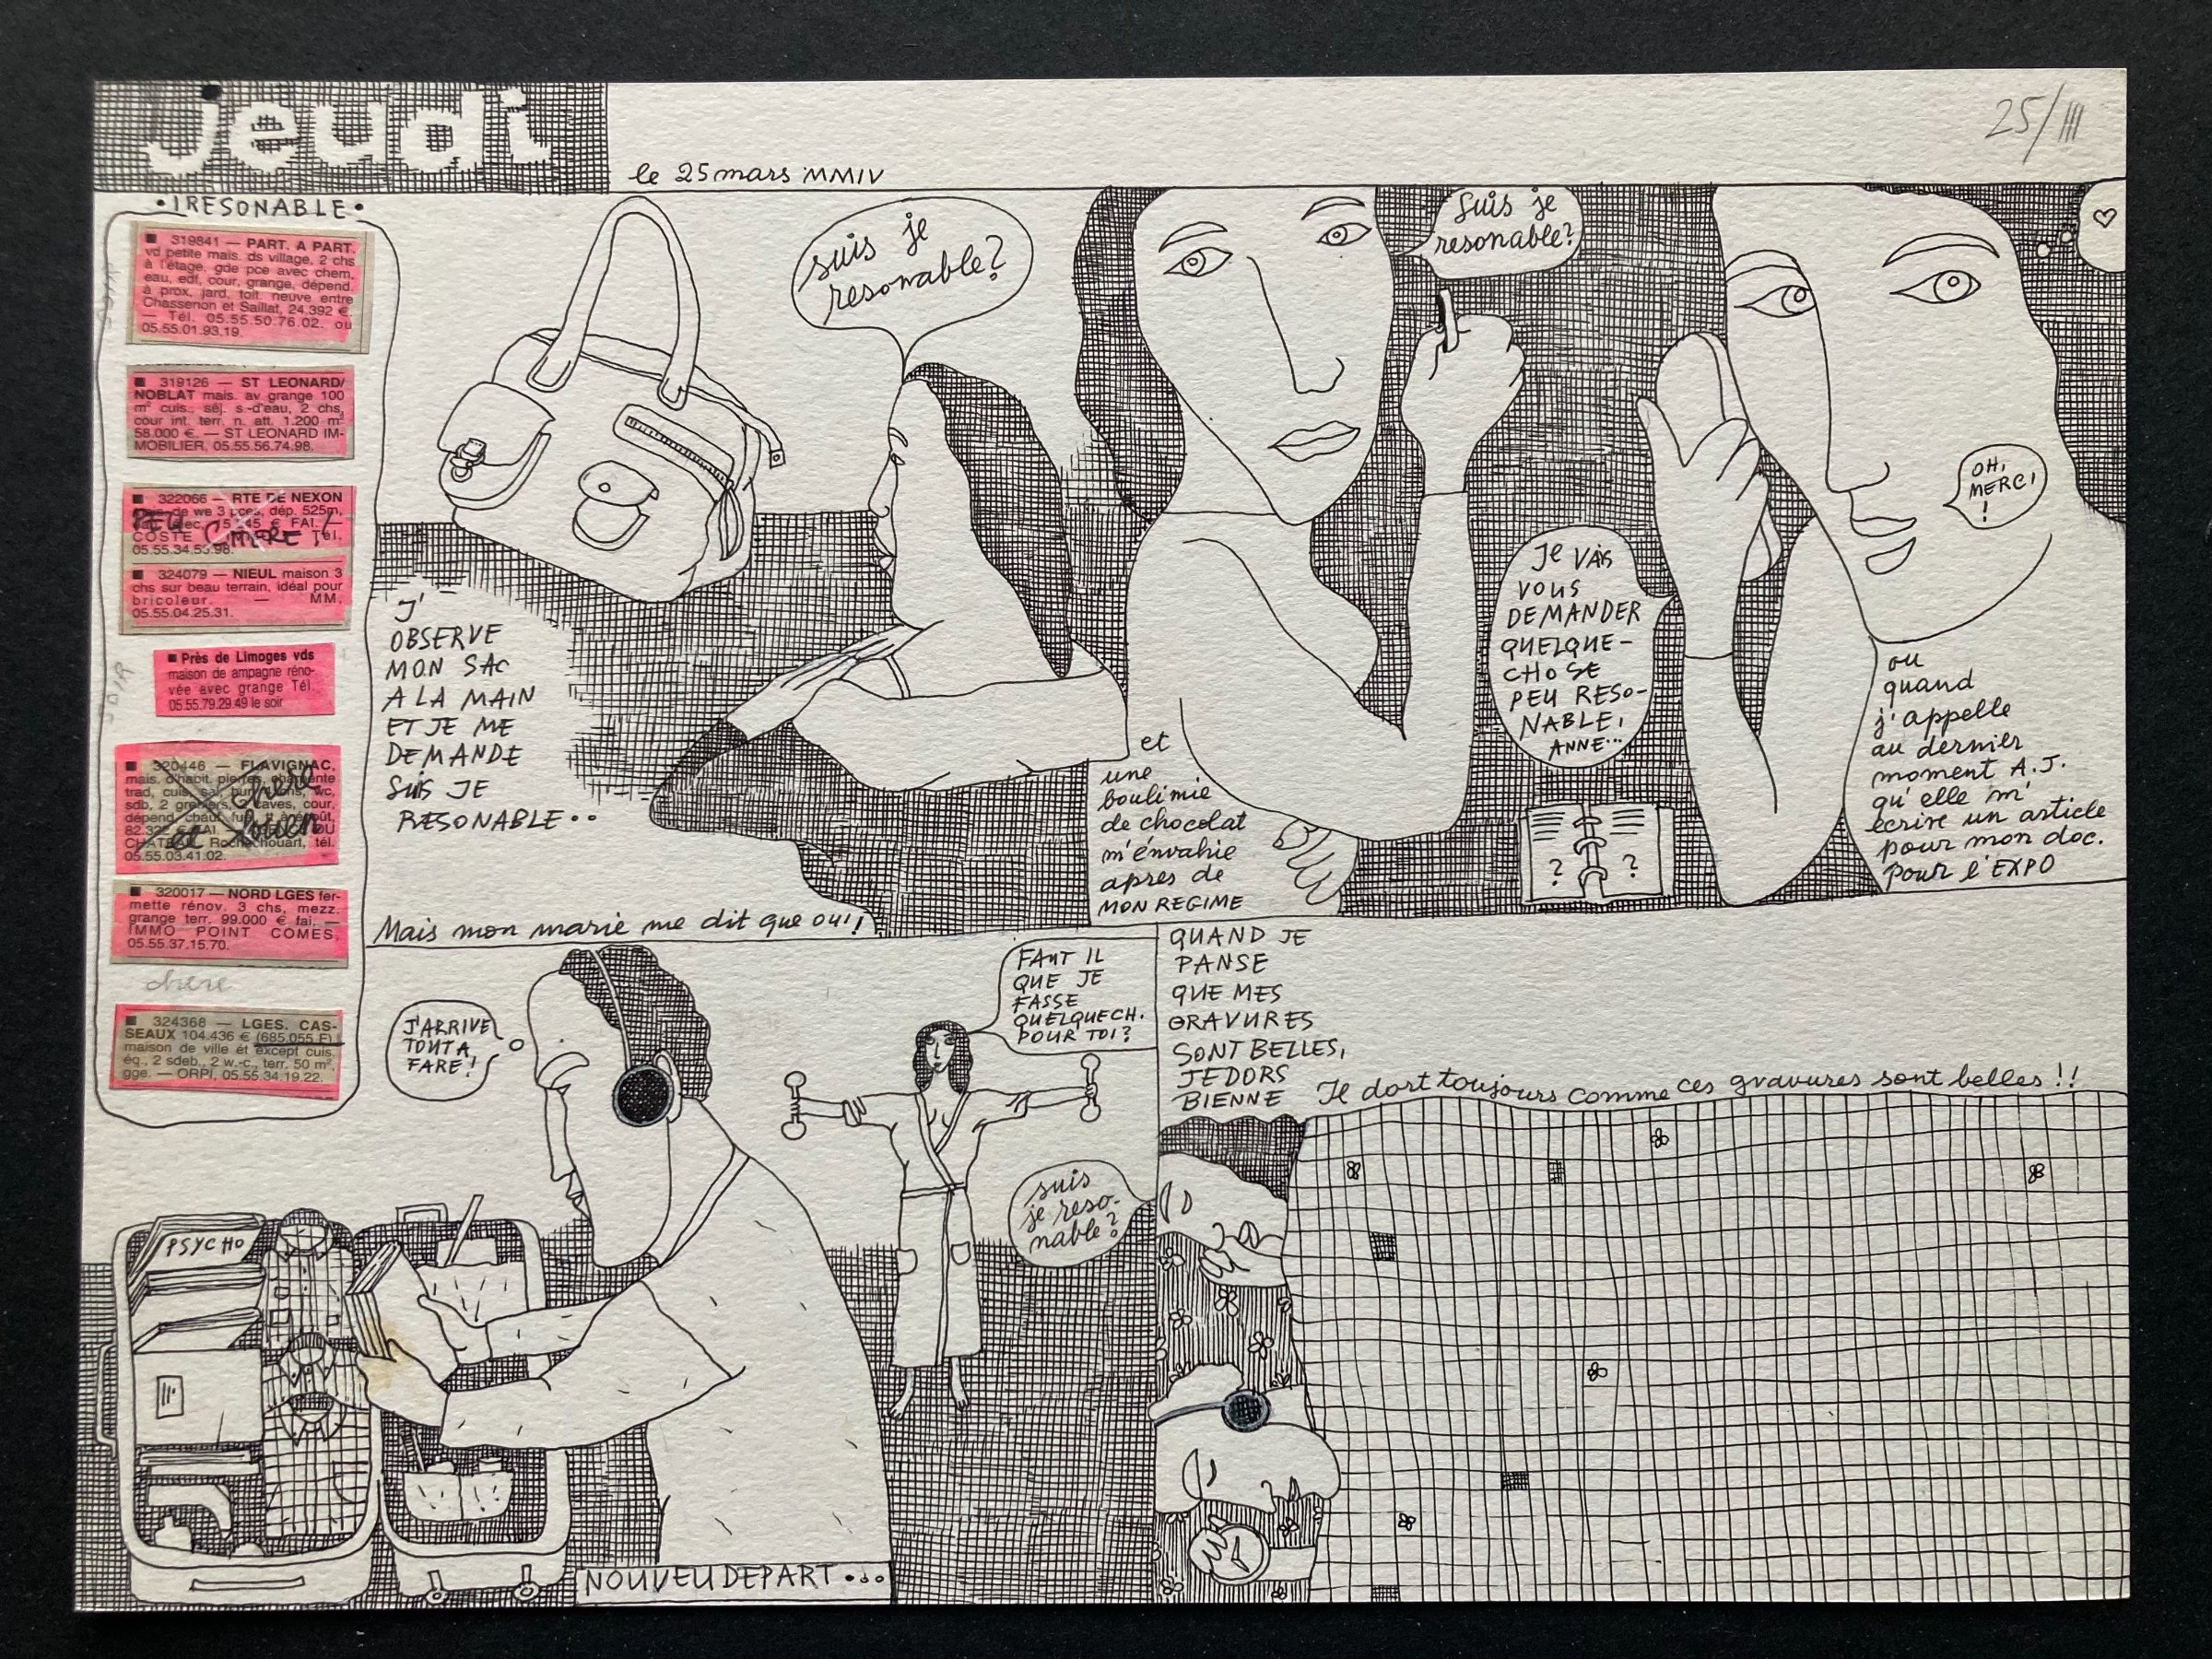 jeudi
le 25 mars MMIV
25/III
•IRESONABLE•
■ 319841 — PART. A PART.
vd petite mais. ds village, 2 chs
à l'étage, gde pce avec chem,
eau, edf, cour, grange, dépend.
à prox, jard. toit. neuve entre
Chassenon et Saillat, 24.392 €.
— Tél. 05.55.50.76.02. ou
05.55.01.93.19.
■ 319126 — ST LEONARD/
NOBLAT mais. av grange 100
m² cuis., séj. s-d'eau, 2 chs,
cour int. terr. n. att. 1.200 m²
58.000 €. — ST LEONARD IM-
MOBILIER, 05.55.56.74.98.
■ 322066 — RTE DE NEXON
de we 3 pces, dép. 525m,
€ FAI. —
COSTE Tél.
05.55.34.55.98.
PEU CHERE!
■ 324079 — NIEUL maison 3
chs sur beau terrain, idéal pour
bricoleur. — MM,
05.55.04.25.31.
SOIR
■ Près de Limoges vds
maison de ampagne réno-
vée avec grange Tél.
05.55.79.29.49 le soir
■ 320446 — FLAVIGNAC,
mais. d'habit. pierres, charpente
trad, cuis, wc,
sdb, 2 greniers, caves, cour,
dépend. chauf. fuel
82.322 €
CHATEAU Rochechouart, tél.
05.55.03.41.02.
chere
et
■ 320017 — NORD LGES fer-
mette rénov. 3 chs, mezz.
grange terr. 99.000 € fai. —
IMMO POINT COMES,
05.55.37.15.70.
chere
■ 324368 — LGES. CAS-
SEAUX 104.436 € (685.055 F)
maison de ville ét except cuis.
éq., 2 sdeb., 2 w.-c., terr. 50 m²,
gge. — ORPI, 05.55.34.19.22.
suis je
resonable?
J'
OBSERVE
MON SAC
A LA MAIN
ET JE ME
DEMANDE
SUIS JE
RESONABLE..
Mais mon marie me dit que oui!
Suis je
resonable?
et
une
boulimie
de chocolat
m'énvahie
apres de
MON REGIME
JE VAIS
VOUS
DEMANDER
QUELQUE-
CHOSE
PEU RESO-
NABLE,
ANNE...
? ?
OH,
MERCI
!
ou
quand
j'appelle
au dernier
moment A.J.
qu'elle m'
écrire un article
pour mon doc.
pour l'EXPO
J'ARRIVE
TOUT A
FARE!
FAUT IL
QUE JE
FASSE
QUELQUECH.
POUR TOI?
PSYCHO
NOUVEU DEPART...
QUAND JE
PANSE
QUE MES
GRAVURES
SONT BELLES,
JE DORS
BIENNE
Il dort toujours comme ces gravures sont belles!!
suis
je reso-
nable?